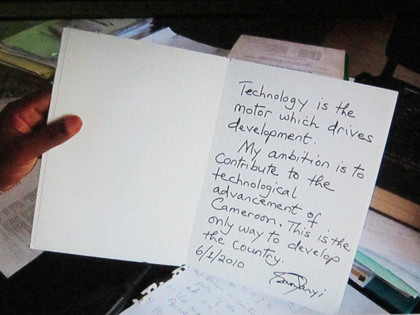 Technology is the
motor which drives
development.
My ambition is to
contribute to the
technological
advancement of
Cameroon. This is the
only way to develop
the country.
6/1/2010